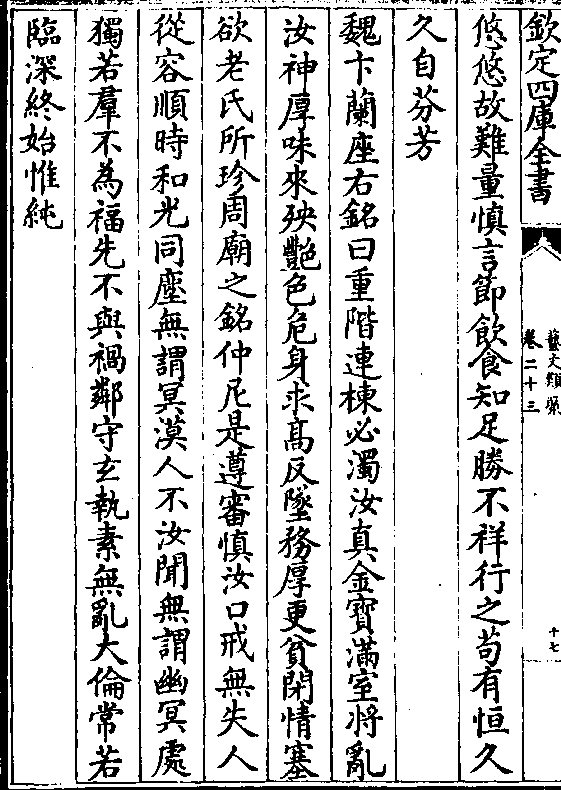 欽定四庫全書
藝文類聚
卷二十三
十七
悠悠故難量慎言節飲食知足勝不祥行之苟有恒久
久自芬芳
魏卞蘭座右銘曰重階連棟必濁汝真金寶滿室將亂
汝神厚味來殃艷色危身求高反墜務厚更貧閉情塞
欲老氏所珍周廟之銘仲尼是遵審慎汝口戒無失人
從容順時和光同塵無謂冥漠人不汝聞無謂幽冥處
獨若羣不為福先不與禍鄰守玄執素無亂大倫常若
臨深終始惟純